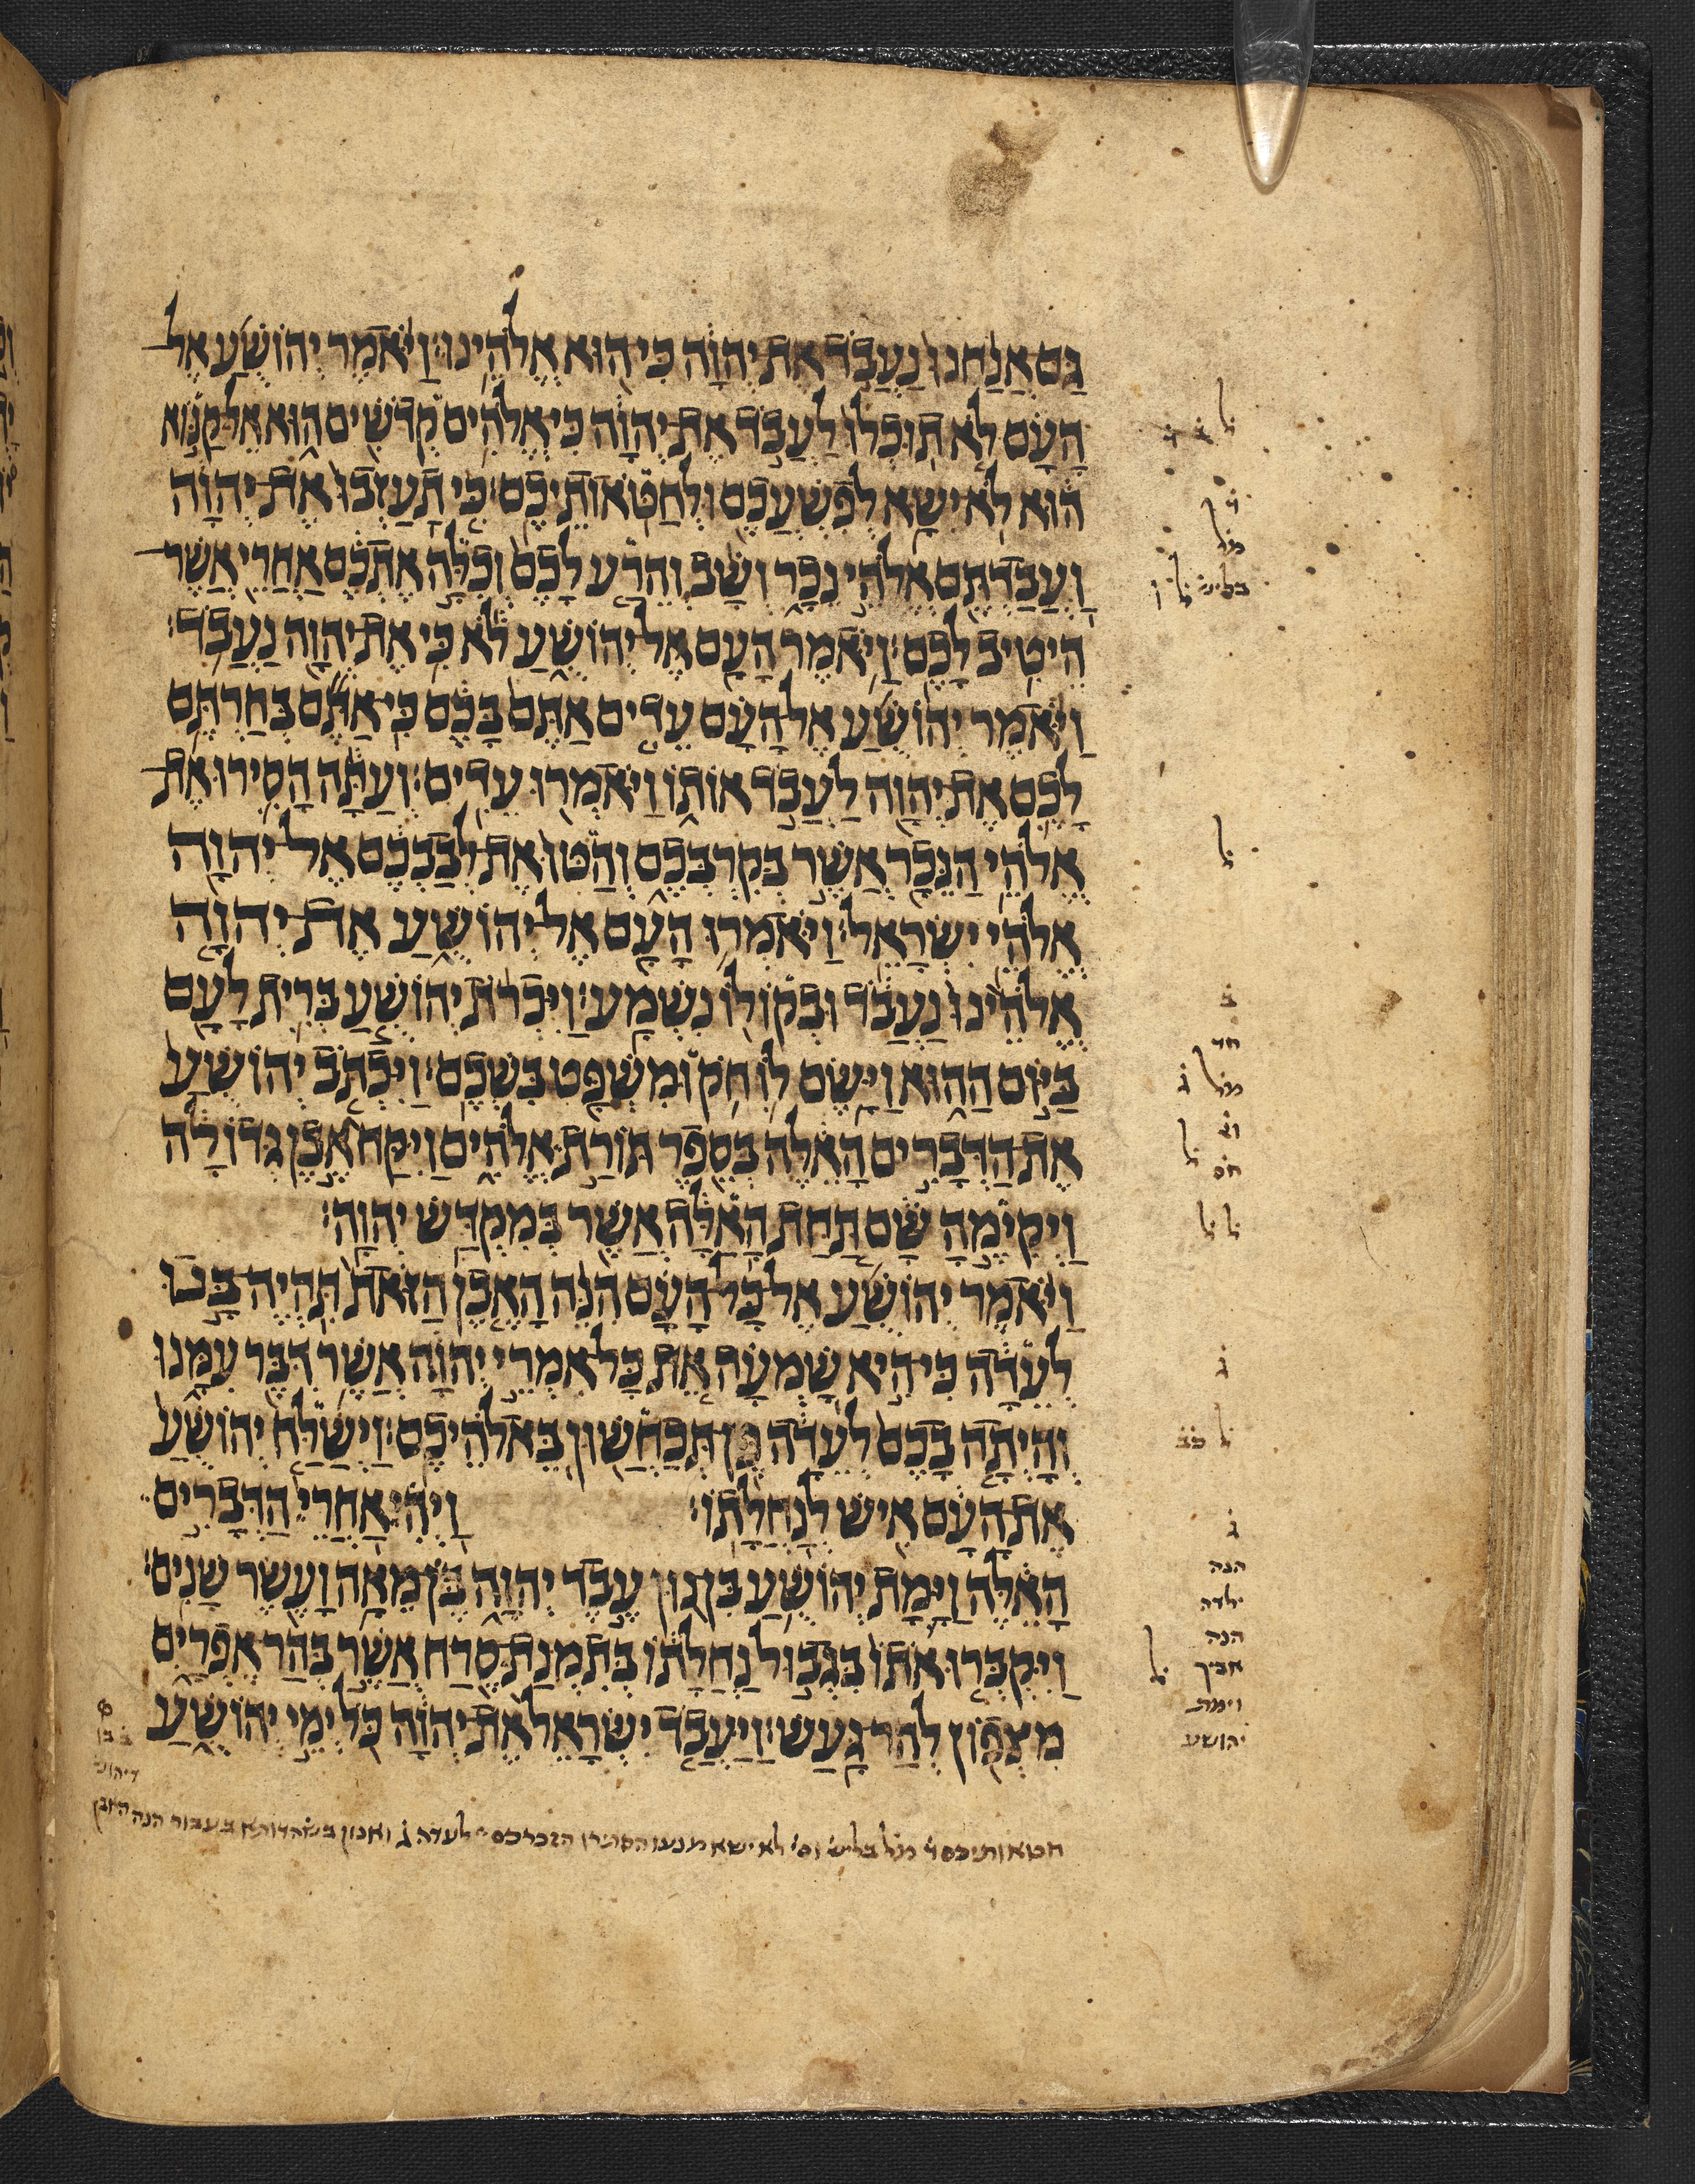 גַּם אֲנַחְנוּ נַעֲבֹד אֶת יְהוָה כִּי הוּא אֱלֹהֵינוּ׃ וַיֹּאמֶר יְהוֹשֻׁעַ אֶל
הָעָם לֹא תוּכְלוּ לַעֲבֹד אֶת יְהוָה כִּי אֱלֹהִים קְדֹשִׁים הוּא אֵל קַנּוֹא
הוּא לֹא יִשָּׂא לְפִשְׁעֲכֶם וּלְחַטֹּאותֵיכֶם׃ כִּי תַעַזְבוּ אֶת יְהוָה
וַעֲבַדְתֶּם אֱלֹהֵי נֵכָר וְשָׁב וְהֵרַע לָכֶם וְכִלָּה אֶתְכֶם אַחֲרֵי אֲשֶׁר
הֵיטִיב לָכֶם׃ וַיֹּאמֶר הָעָם אֶל יְהוֹשֻׁעַ לֹא כִּי אֶת יְהוָה נַעֲבֹד׃
וַיֹּאמֶר יְהוֹשֻׁעַ אֶל הָעָם עֵדִים אַתֶּם בָּכֶם כִּי אַתֶּם בְּחַרְתֶּם
לָכֶם אֶת יְהוָה לַעֲבֹד אוֹתוֹ וַיֹּאמְרוּ עֵדִים׃ וְעַתָּה הָסִירוּ אֶת
אֱלֹהֵי הַנֵּכָר אֲשֶׁר בְּקִרְבְּכֶם וְהַטּוּ אֶת לְבַבְכֶם אֶל יְהוָה
אֱלֹהֵי יִשְׂרָאֵל׃ וַיֹּאמְרוּ הָעָם אֶל יְהוֹשֻׁעַ אֶת יְהוָה
אֱלֹהֵינוּ נַעֲבֹד וּבְקוֹלוֹ נִשְׁמָע׃ וַיִּכְרֹת יְהוֹשֻׁעַ בְּרִית לָעָם
בַּיּוֹם הַהוּא וַיָּשֶׂם לוֹ חֹק וּמִשְׁפָּט בִּשְׁכֶם׃ וַיִּכְתֹּב יְהוֹשֻׁעַ
אֶת הַדְּבָרִים הָאֵלֶּה בְּסֵפֶר תּוֹרַת אֱלֹהִים וַיִּקַּח אֶבֶן גְּדוֹלָה
וַיְקִימֶהָ שָּׁם תַּחַת הָאַלָּה אֲשֶׁר בְּמִקְדַּשׁ יְהוָה׃
וַיֹּאמֶר יְהוֹשֻׁעַ אֶל כָּל הָעָם הִנֵּה הָאֶבֶן הַזֹּאת תִּהְיֶה בָּנוּ
לְעֵדָה כִּי הִיא שָׁמְעָה אֵת כָּל אִמְרֵי יְהוָה אֲשֶׁר דִּבֶּר עִמָּנוּ
וְהָיְתָה בָכֶם לְעֵדָה פֶּן תְּכַחֲשׁוּן בֵּאלֹהֵיכֶם׃ וַיְשַׁלַּח יְהוֹשֻׁעַ
אֶת הָעָם אִישׁ לְנַחֲלָתוֹ׃ וַיְהִי אַחֲרֵי הַדְּבָרִים
הָאֵלֶּה וַיָּמָת יְהוֹשֻׁעַ בִּן נוּן עֶבֶד יְהוָה בֶּן מֵאָה וָעֶשֶׂר שָׁנִים׃
וַיִּקְבְּרוּ אֹתוֹ בִּגְבוּל נַחֲלָתוֹ בְּתִמְנַת סֶרַח אֲשֶׁר בְּהַר אֶפְרָיִם
מִצְּפוֹן לְהַר גָּעַשׁ׃ וַיַּעֲבֹד יִשְׂרָאֵל אֶת יְהוָה כֹּל יְמֵי יְהוֹשֻׁעַ
הנה
ילדה
הנה
אביך
וימת
יהושע
חטאותיכם מל בליש לא ישא לעדה בעבור הנה האבן